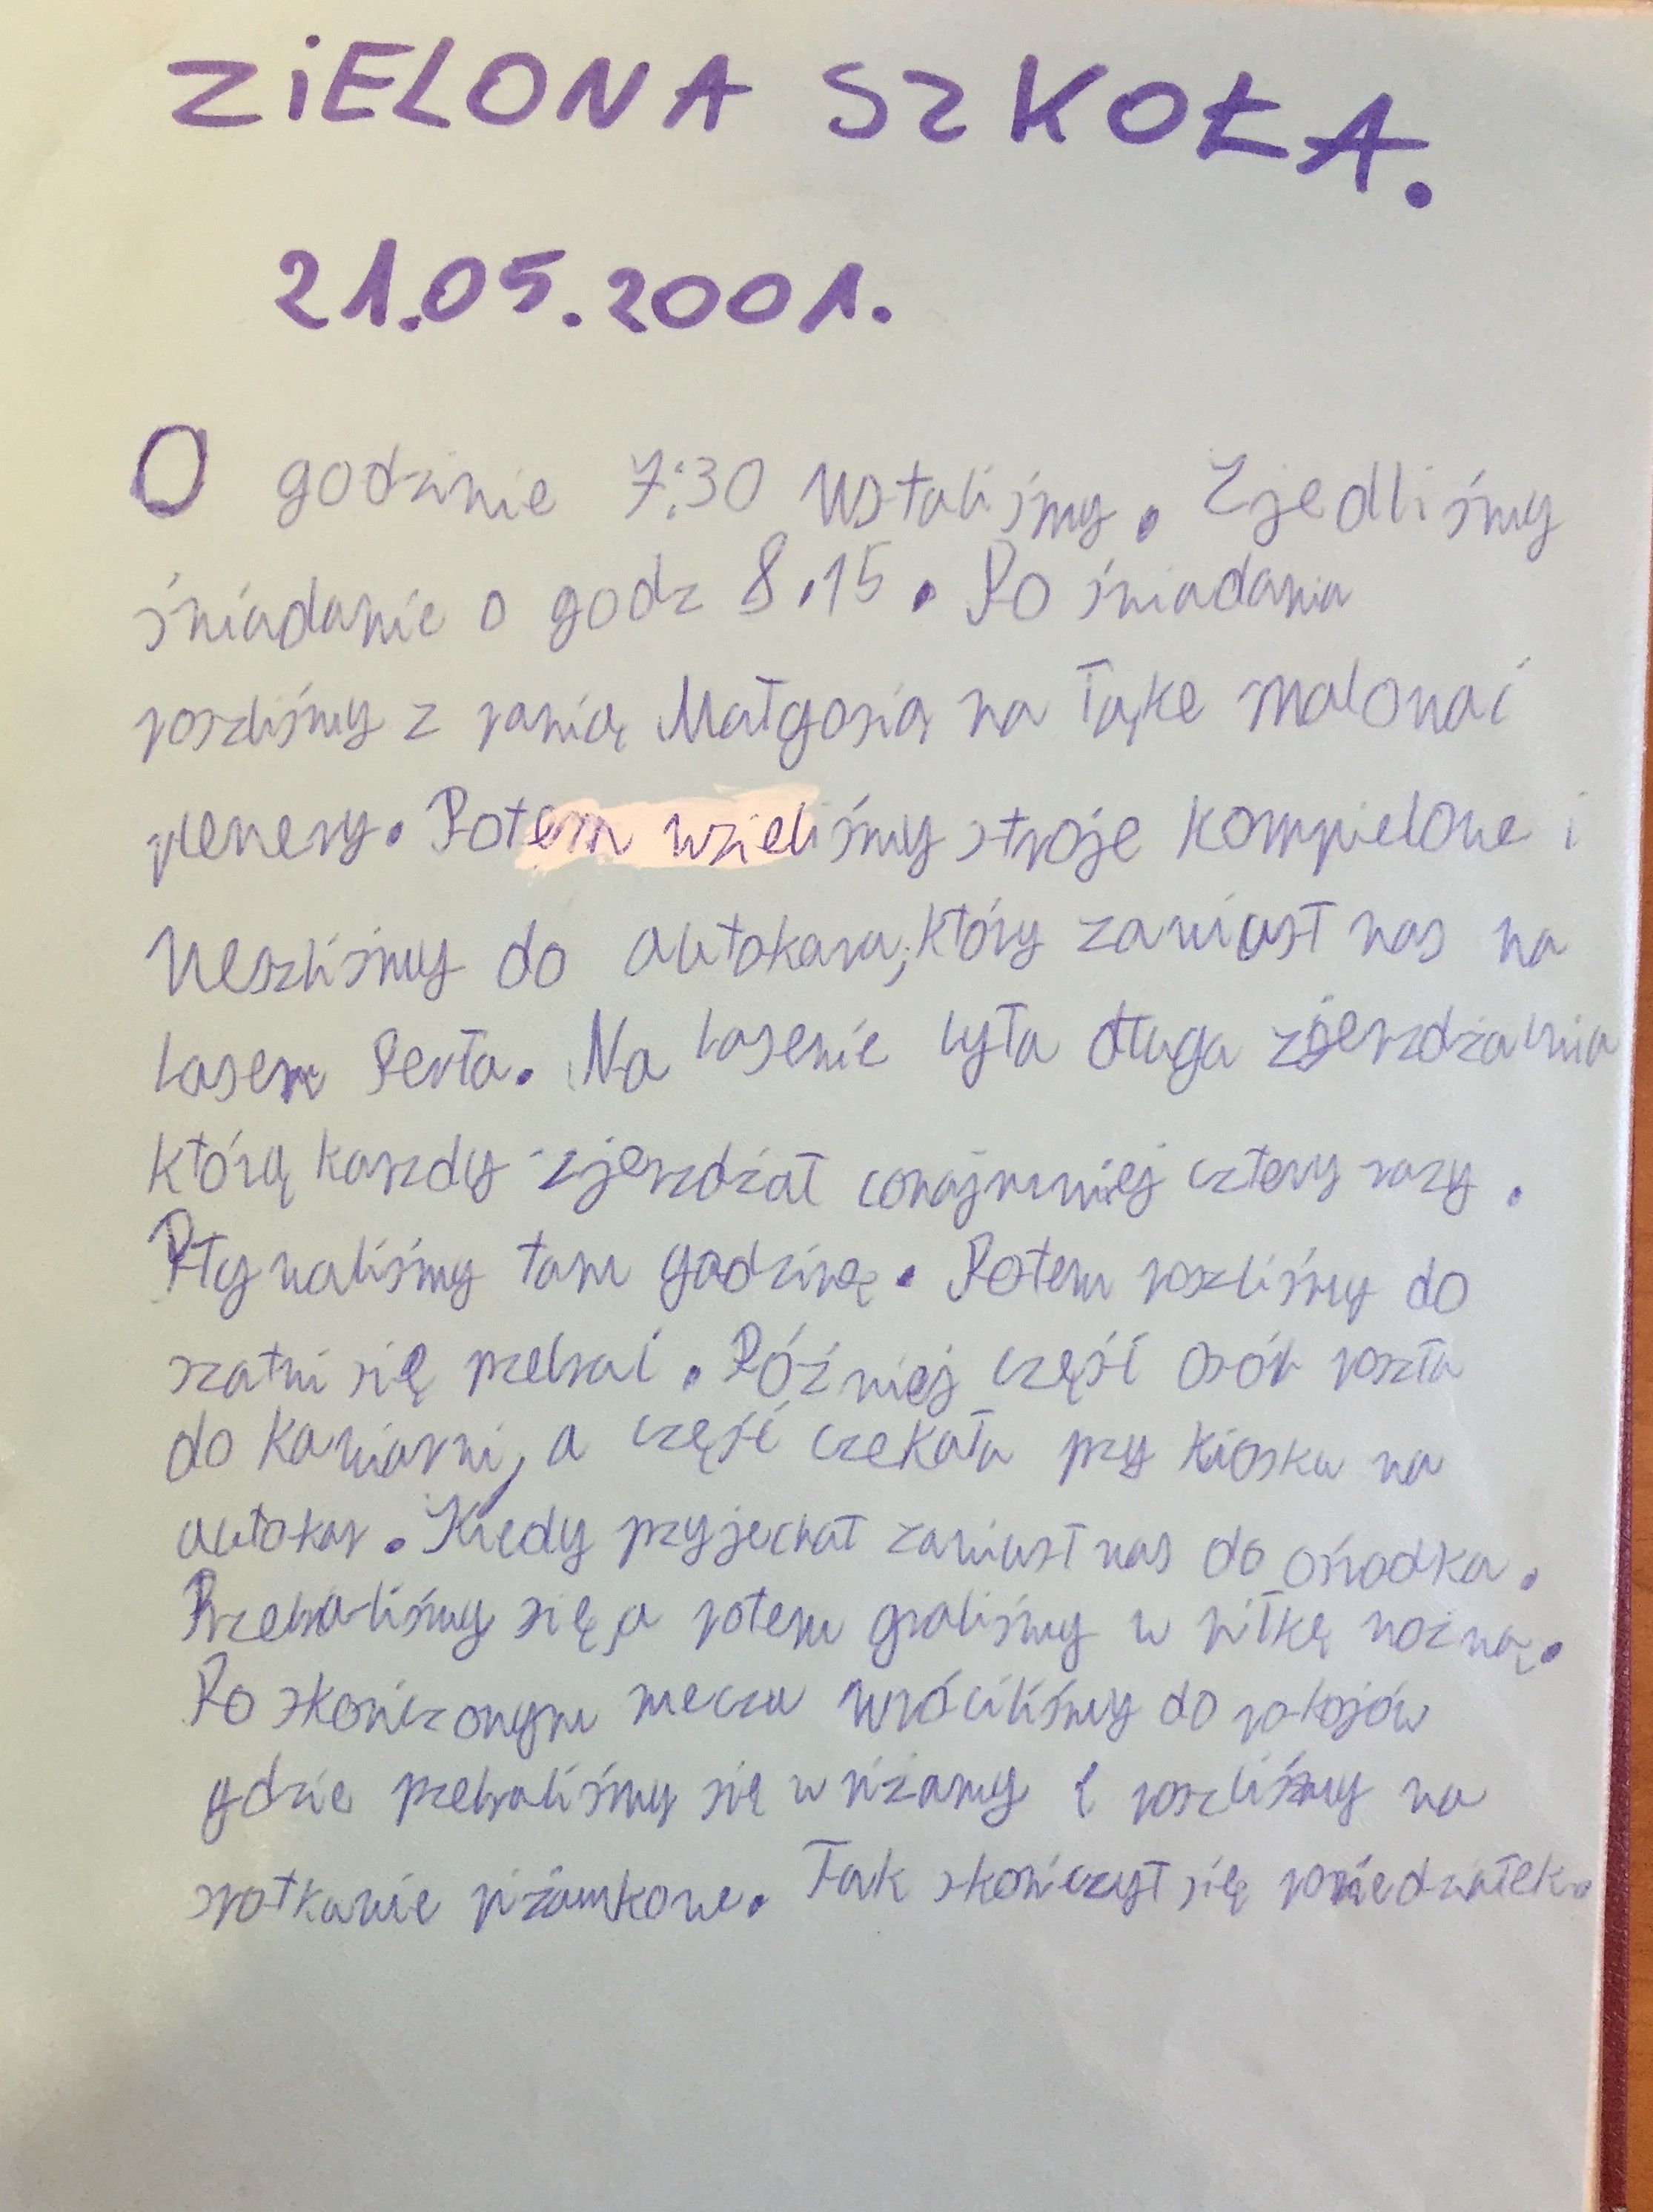 ZiELONA SZKOŁA.
21.05.2001.
O godzinie 7:30 wstaliśmy. Zjedliśmy
śniadanie o godz 8.15. Po śniadania
poszliśmy z panią Małgosią na łąke malować
plenery. Potem wzieliśmy stroje kompielowe i
weszliśmy do autokara, który zawiusł nas na
basem Perła. Na basenie była długa zjerzdżalnia
którą karzdy zjerzdżał conajmniej cztery razy.
Pływaliśmy tam godzinę. Potem poszliśmy do
szatni się przebrać. Później część osób poszła
do kawiarni, a część czekała przy kiosku na
autokar. Kiedy przyjechał zawiusł nas do ośrodka.
Przebraliśmy się, a potem graliśmy w piłkę nożną.
Po skończonym meczu wróciliśmy do pokojów
gdzie przebraliśmy się w piżamy i poszliśmy na
spotkanie piżamkowe. Tak skończył się poniedziałek.